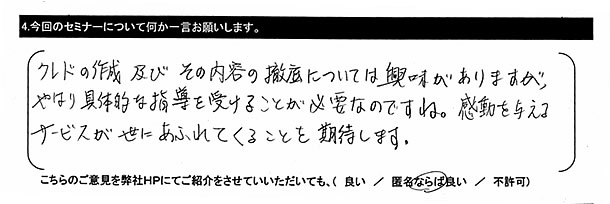 4.今回のセミナーについて何か一言お願いします。
クレドの作成 及び その内容の徹底については興味がありますが、
やはり具体的な指導を受けることが必要なのですね。感動を与える
サービスが世にあふれてくることを期待します。
こちらのご意見を弊社HPにてご紹介をさせていいただいても、( 良い ／ 匿名ならば良い ／ 不許可)